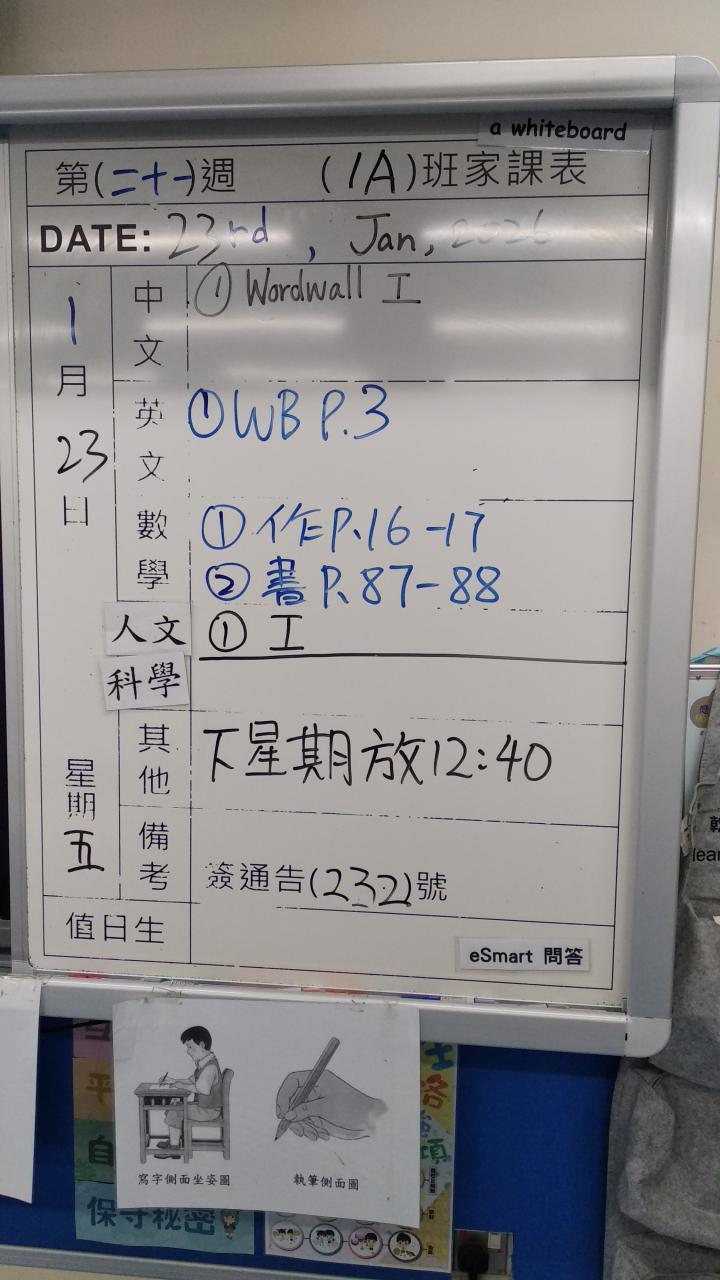 a whiteboard
第(二十一)週 (1A)班家課表
DATE: 23rd, Jan, 2026
1月23日
星期五
中文
① Wordwall 工
英文
① WB P.3
數學
① 作P.16-17
② 書P.87-88
人文
① 工
科學
其他
下星期放12:40
備考
簽通告(232)號
值日生
eSmart 問答
寫字側面坐姿圖
執筆側面圖
平
自
保守秘密